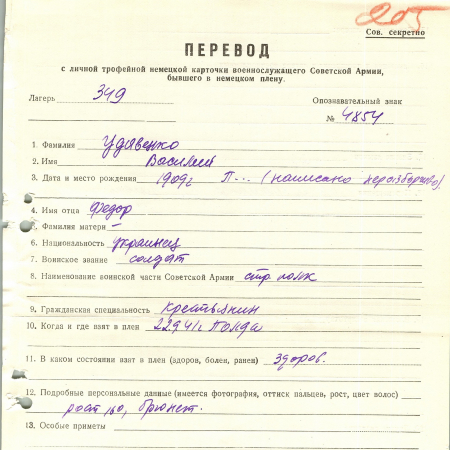 205
Сов. секретно
ПЕРЕВОД
с личной трофейной немецкой карточки военнослужащего Советской Армии,
бывшего в немецком плену.
Лагерь 349 Опознавательный знак
№ 4854
1. Фамилия Удовенко
2. Имя Василий
3. Дата и место рождения 1909г П... (написано неразборчиво)
4. Имя отца Федор
5. Фамилия матери –
6. Национальность украинец
7. Воинское звание солдат
8. Наименование воинской части Советской Армии стр. полк
9. Гражданская специальность крестьянин
10. Когда и где взят в плен 22.9.41г
11. В каком состоянии взят в плен (здоров, болен, ранен) здоров.
12. Подробные персональные данные (имеется фотография, оттиск пальцев, рост, цвет волос)
рост 160, брюнет.
13. Особые приметы